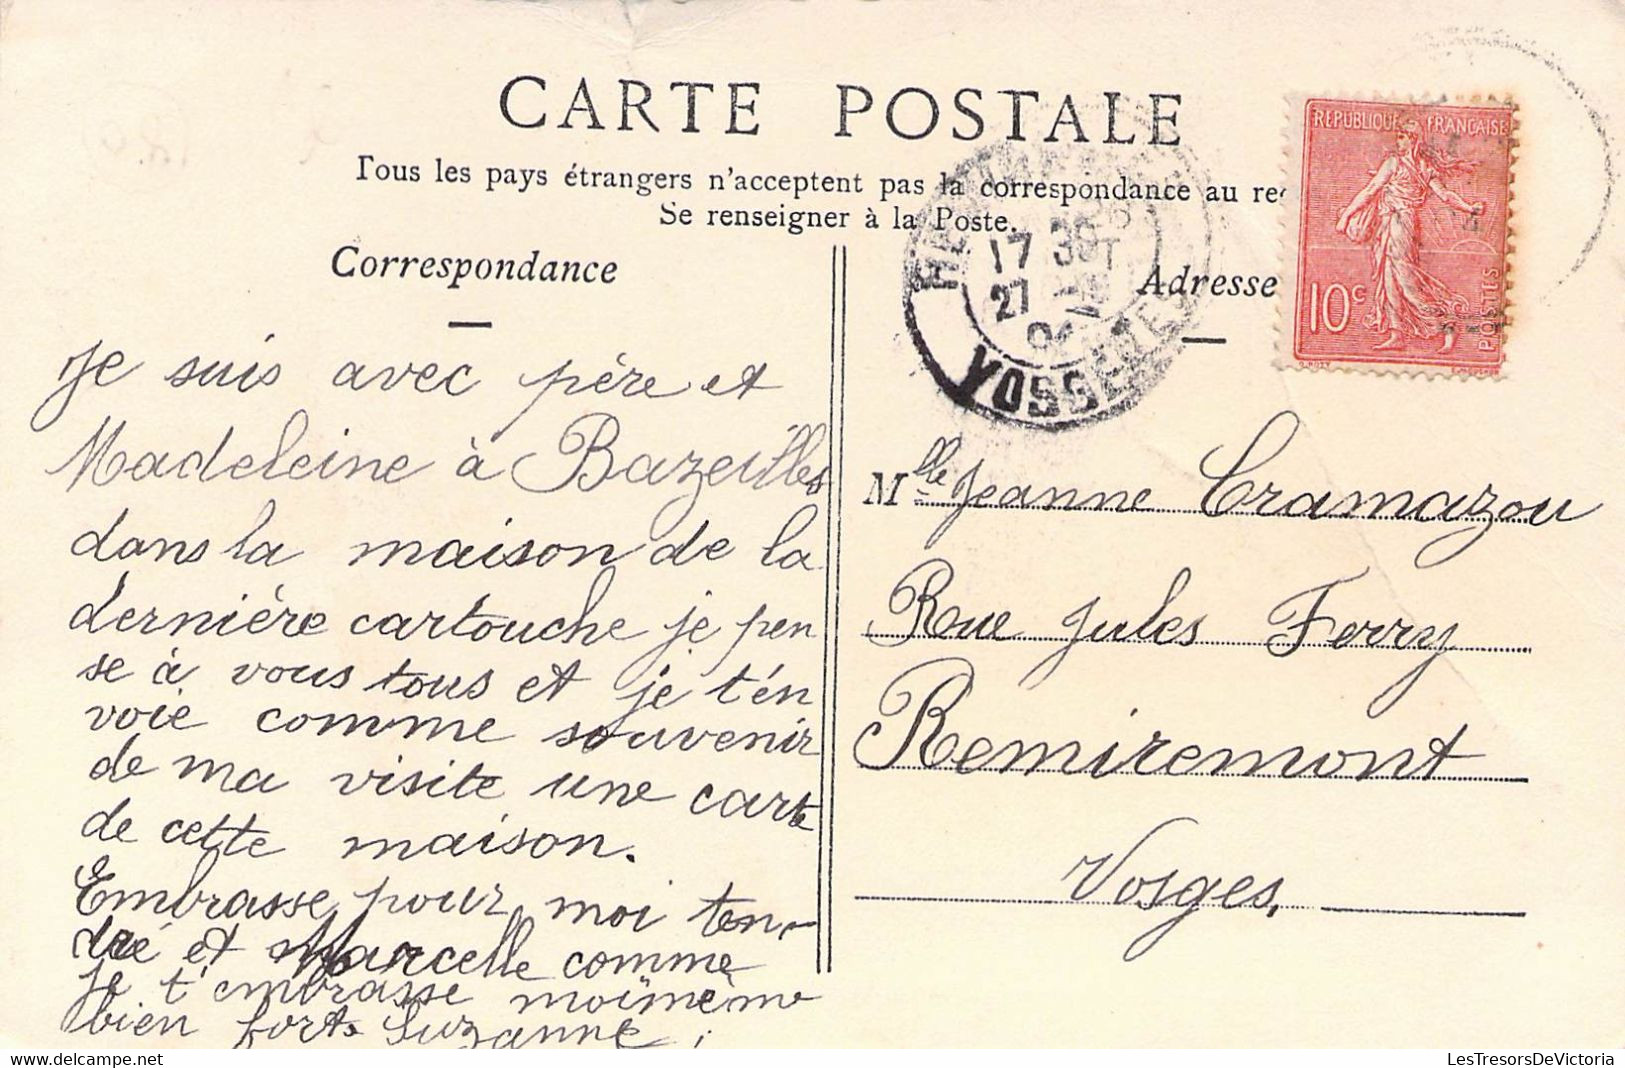 CARTE POSTALE
Tous les pays étrangers n'acceptent pas la correspondance au rec
Se renseigner à la Poste.
Correspondance
Je suis avec père et
Madeleine à Bazeilles
dans la maison de la
dernière cartouche je pen
se à vous tous et je t'én
voie comme souvenir
de ma visite une carte
de cette maison.
Embrasse pour moi ten-
dré et Marcelle comme
je t'embrasse moimême
bien fort Suzanne
Adresse
REPUBLIQUE FRANÇAISE
10c
POSTES
O. ROTY
E. MOUCHON
17 30
27
VOSGES
Mlle Jeanne Cramazou
Rue Jules Ferry
Remiremont
Vosges.
LesTresorsDeVictoria